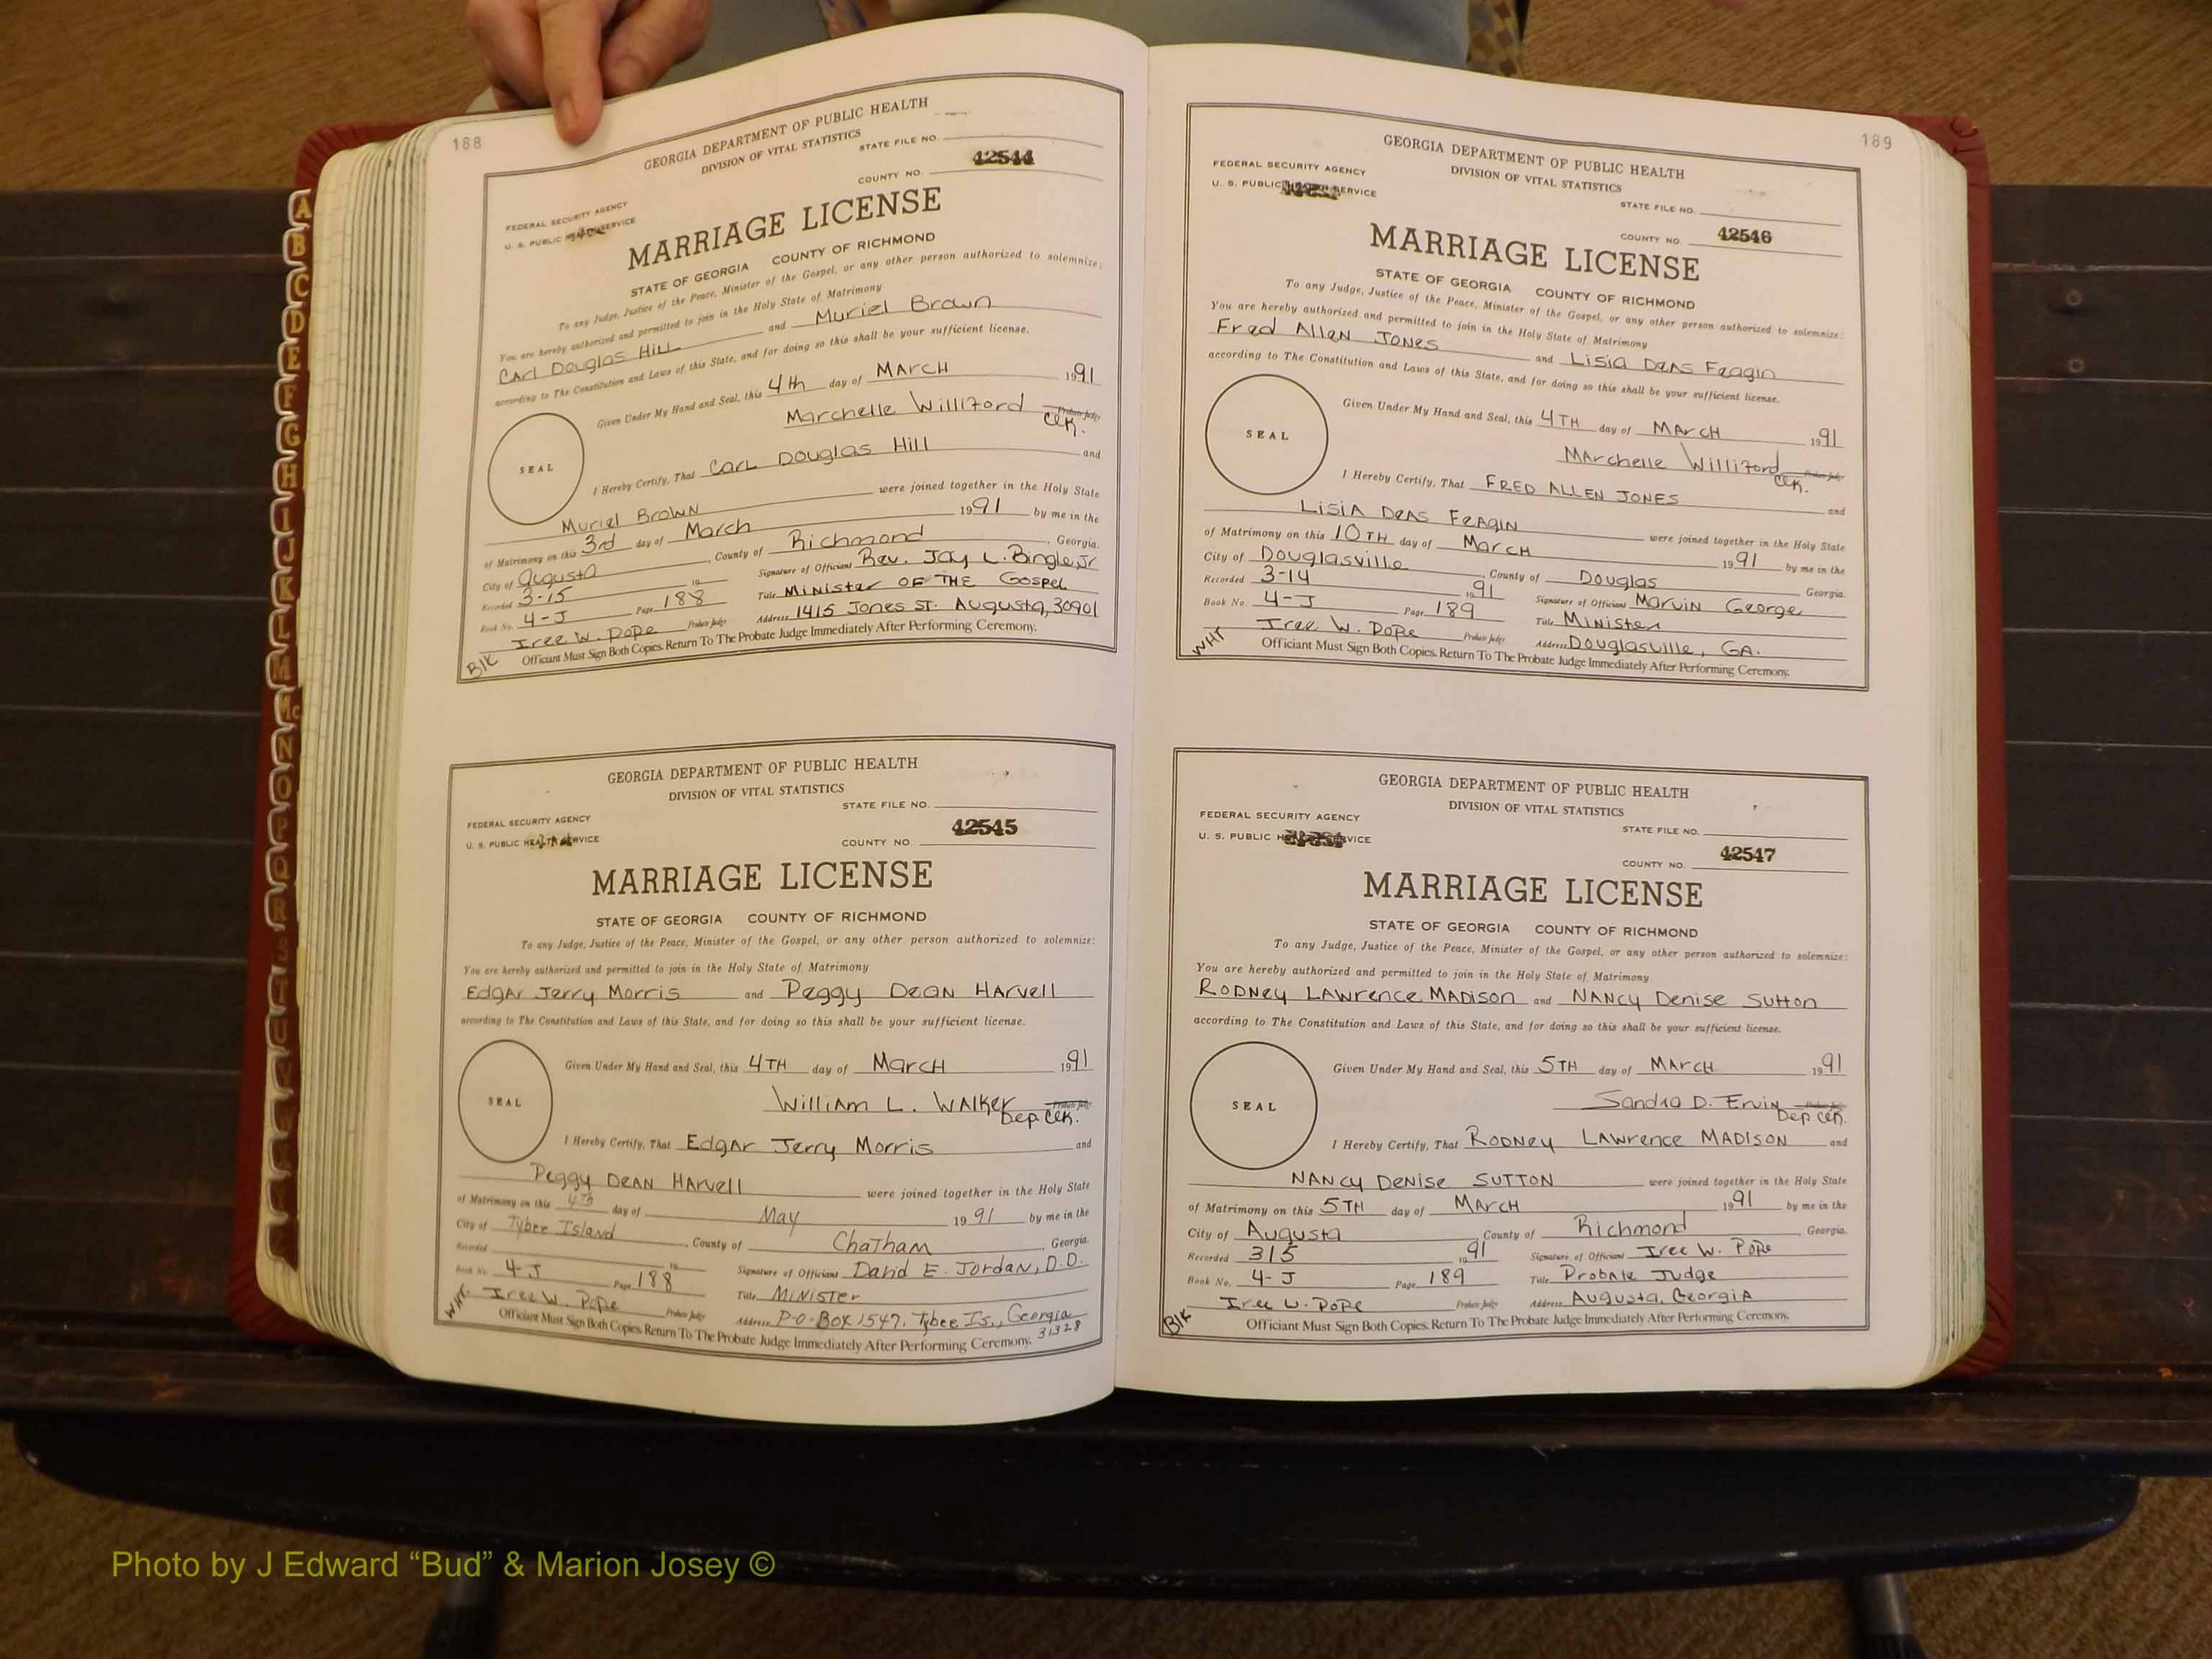 188
GEORGIA DEPARTMENT OF PUBLIC HEALTH
DIVISION OF VITAL STATISTICS
STATE FILE NO.
42544
COUNTY NO.
FEDERAL SECURITY AGENCY
U. S. PUBLIC HEALTH SERVICE
MARRIAGE LICENSE
STATE OF GEORGIA COUNTY OF RICHMOND
To any Judge, Justice of the Peace, Minister of the Gospel, or any other person authorized to solemnize:
You are hereby authorized and permitted to join in the Holy State of Matrimony
Carl Douglas Hill and Muriel Brown
according to The Constitution and Laws of this State, and for doing so this shall be your sufficient license.
Given Under My Hand and Seal, this 4th day of March 1991
Marchelle Williford Probate Judge
Clk.
SEAL
I Hereby Certify, That Carl Douglas Hill and
Muriel Brown were joined together in the Holy State
of Matrimony on this 3rd day of March 1991 by me in the
City of Augusta, County of Richmond, Georgia.
Recorded 3-15 19 Signature of Official Rev. Jay L. Bingle, Jr
Book No. 4-J Page 188 Title Minister OF THE Gospel
Iree W. Pope Probate Judge Address 1415 Jones St. Augusta, 30901
Blk Officiant Must Sign Both Copies. Return To The Probate Judge Immediately After Performing Ceremony.
GEORGIA DEPARTMENT OF PUBLIC HEALTH
DIVISION OF VITAL STATISTICS
STATE FILE NO.
FEDERAL SECURITY AGENCY
42545
U. S. PUBLIC HEALTH SERVICE
COUNTY NO.
MARRIAGE LICENSE
STATE OF GEORGIA COUNTY OF RICHMOND
To any Judge, Justice of the Peace, Minister of the Gospel, or any other person authorized to solemnize:
You are hereby authorized and permitted to join in the Holy State of Matrimony
Edgar Jerry Morris and Peggy Dean Harvell
according to The Constitution and Laws of this State, and for doing so this shall be your sufficient license.
Given Under My Hand and Seal, this 4TH day of March 1991
William L. Walker Probate Judge
Dep. Clk.
SEAL
I Hereby Certify, That Edgar Jerry Morris and
Peggy Dean Harvell were joined together in the Holy State
of Matrimony on this 4th day of May 1991 by me in the
City of Tybee Island, County of Chatham, Georgia.
Recorded 19 Signature of Official David E. Jordan, D.D.
Book No. 4-J Page 188 Title Minister
Iree W. Pope Probate Judge Address P.O. Box 1547, Tybee Is., Georgia
31328
WHT. Officiant Must Sign Both Copies. Return To The Probate Judge Immediately After Performing Ceremony.
189
GEORGIA DEPARTMENT OF PUBLIC HEALTH
DIVISION OF VITAL STATISTICS
FEDERAL SECURITY AGENCY
U. S. PUBLIC HEALTH SERVICE
STATE FILE NO.
COUNTY NO. 42546
MARRIAGE LICENSE
STATE OF GEORGIA COUNTY OF RICHMOND
To any Judge, Justice of the Peace, Minister of the Gospel, or any other person authorized to solemnize:
You are hereby authorized and permitted to join in the Holy State of Matrimony
Fred Allen Jones and Lisia Deas Feagin
according to The Constitution and Laws of this State, and for doing so this shall be your sufficient license.
Given Under My Hand and Seal, this 4TH day of March 1991
Marchelle Williford Probate Judge
Clk.
SEAL
I Hereby Certify, That FRED ALLEN JONES and
Lisia Deas Feagin were joined together in the Holy State
of Matrimony on this 10TH day of March 1991 by me in the
City of Douglasville, County of Douglas Georgia.
Recorded 3-14 1991 Signature of Official Marvin George
Book No. 4-J Page 189 Title Minister
Iree W. Pope Probate Judge Address Douglasville, GA.
WHT Officiant Must Sign Both Copies. Return To The Probate Judge Immediately After Performing Ceremony.
GEORGIA DEPARTMENT OF PUBLIC HEALTH
DIVISION OF VITAL STATISTICS
FEDERAL SECURITY AGENCY
STATE FILE NO.
U. S. PUBLIC HEALTH SERVICE
COUNTY NO. 42547
MARRIAGE LICENSE
STATE OF GEORGIA COUNTY OF RICHMOND
To any Judge, Justice of the Peace, Minister of the Gospel, or any other person authorized to solemnize:
You are hereby authorized and permitted to join in the Holy State of Matrimony
Rodney Lawrence Madison and Nancy Denise Sutton
according to The Constitution and Laws of this State, and for doing so this shall be your sufficient license.
Given Under My Hand and Seal, this 5TH day of March 1991
Sandra D. Ervin Probate Judge
Dep Clk.
SEAL
I Hereby Certify, That Rodney Lawrence MADISON and
Nancy Denise SUTTON were joined together in the Holy State
of Matrimony on this 5TH day of March 1991 by me in the
City of Augusta, County of Richmond, Georgia.
Recorded 315 1991 Signature of Official Iree W. Pope
Book No. 4-J Page 189 Title Probate Judge
Iree W. Pope Probate Judge Address Augusta, Georgia
Blk Officiant Must Sign Both Copies. Return To The Probate Judge Immediately After Performing Ceremony.
A
B
C
D
E
F
G
H
I
J
K
L
M
Mc
N
O
P
Q
R
S
T
U
Photo by J Edward “Bud” & Marion Josey ©